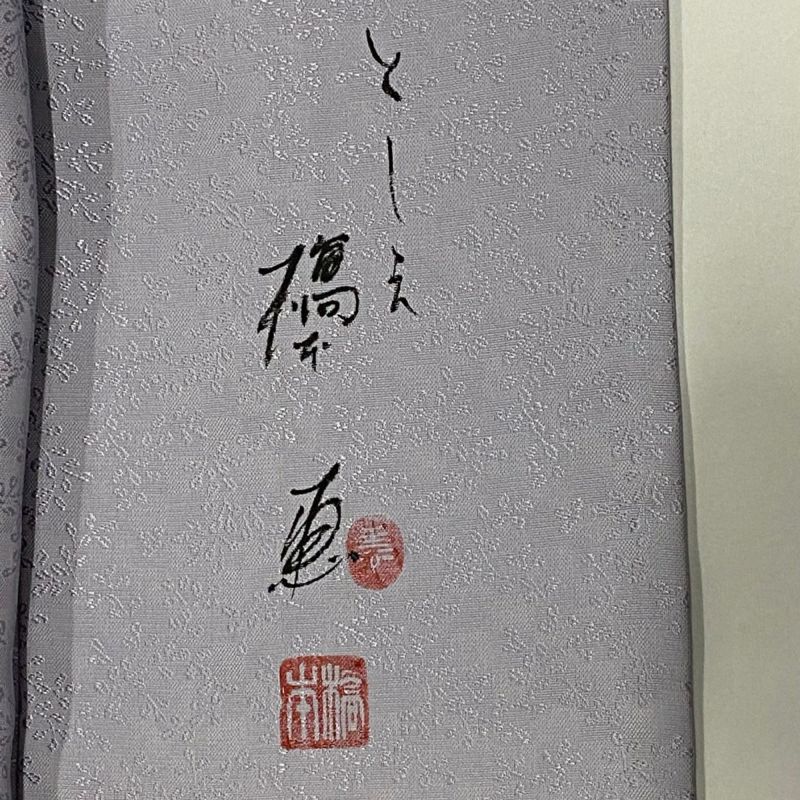 としえ
橋本
橋本